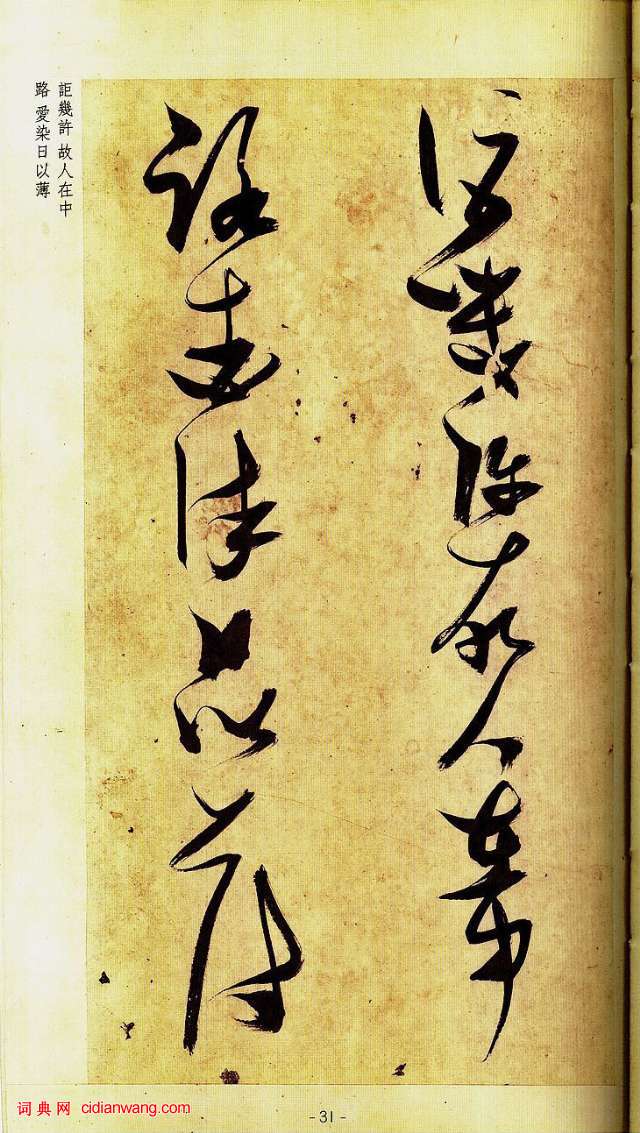 詎幾許故人在中
路愛染日以薄
詎幾許 故人在中
路 愛染日以薄
词典网 cidianwang.com
- 31 -